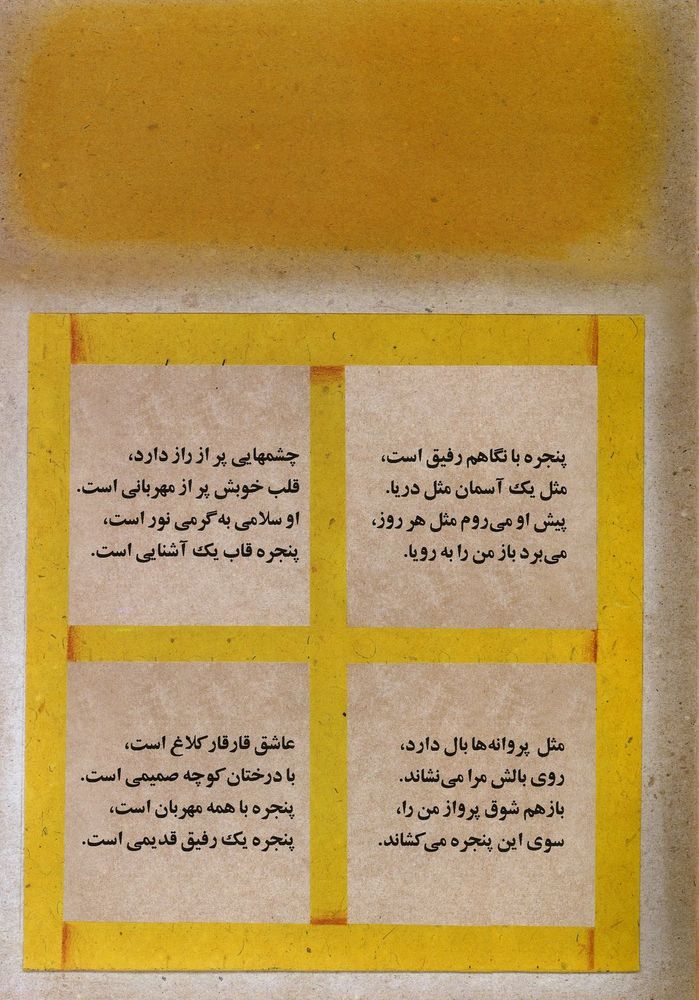 پنجره با نگاهم رفیق است،
مثل یک آسمان مثل دریا.
پیش او می‌روم مثل هر روز،
می‌برد باز من را به رویا.
چشمهایی پر از راز دارد،
قلب خوبش پر از مهربانی است.
او سلامی به گرمی نور است،
پنجره قاب یک آشنایی است.
مثل پروانه‌ها بال دارد،
روی بالش مرا می‌نشاند.
بازهم شوق پرواز من را،
سوی این پنجره می‌کشاند.
عاشق قارقار کلاغ است،
با درختان کوچه صمیمی است.
پنجره با همه مهربان است،
پنجره یک رفیق قدیمی است.